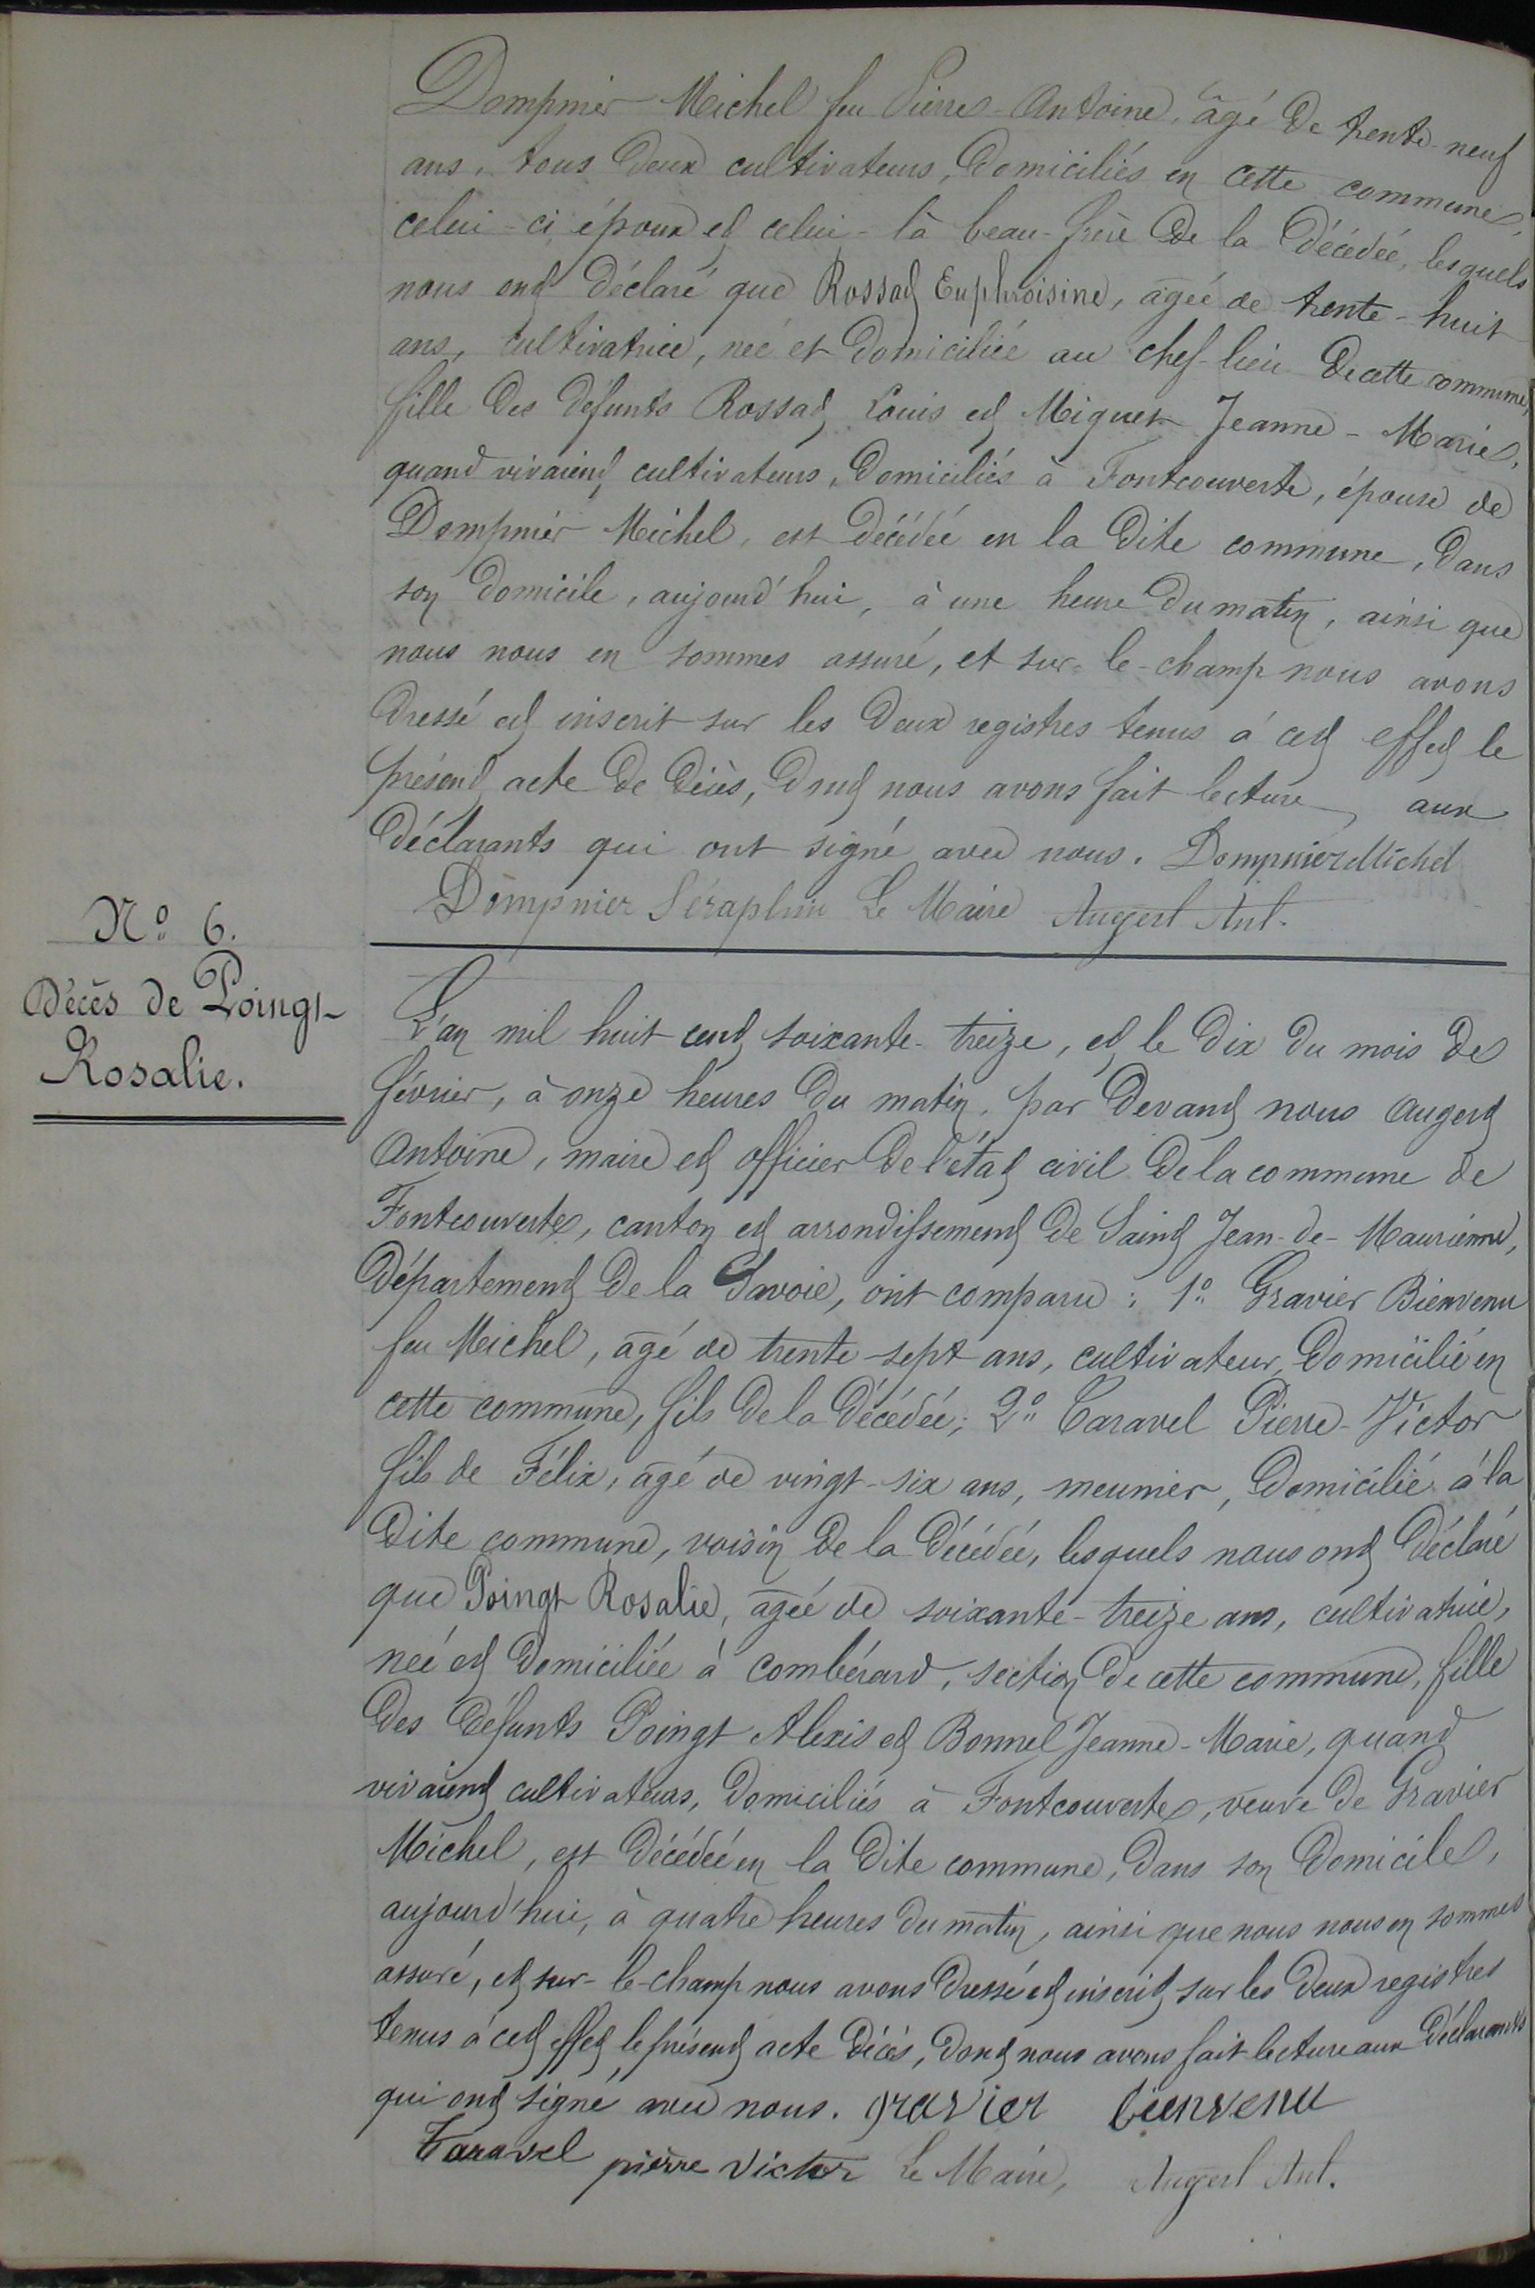 Dompnier Michel feu Pierre-Antoine, âgé de trente-neuf
ans, tous deux cultivateurs, domiciliés en cette commune,
celui-ci époux et celui-là beau-frère de la décédée, lesquels
nous ont déclaré que Rossat Euphroisine, âgée de trente-huit
ans, cultivatrice, née et domiciliée au chef-lieu de cette commune,
fille des défunts Rossat Louis et Miguet Jeanne-Marie,
quand vivaient cultivateurs, domiciliés à Fontcouverte, épouse de
Dompnier Michel, est décédée en la dite commune, dans
son domicile, aujourd'hui, à une heure du matin, ainsi que
nous nous en sommes assuré, et sur-le-champ nous avons
dressé et inscrit sur les deux registres tenus à cet effet le
présent acte de décès, dont nous avons fait lecture aux
déclarants qui ont signé avec nous. Dompnier Michel
Dompnier Séraphin Le Maire Augert Ant.
N° 6.
Décès de Poingt
Rosalie.
L'an mil huit cent soixante-treize, et le dix du mois de
février, à onze heures du matin, par devant nous Augert
Antoine, maire et officier de l'état civil de la commune de
Fontcouverte, canton et arrondissement de Saint Jean-de-Maurienne,
département de la Savoie, ont comparu : 1° Gravier Bienvenu
feu Michel, âgé de trente-sept ans, cultivateur, domicilié en
cette commune, fils de la décédée; 2° Taravel Pierre-Victor
fils de Félix, âgé de vingt-six ans, meunier, domicilié à la
dite commune, voisin de la décédée, lesquels nous ont déclaré
que Poingt Rosalie, âgée de soixante-treize ans, cultivatrice,
née et domiciliée à Combérard, section de cette commune, fille
des défunts Poingt Alexis et Bonnel Jeanne-Marie, quand
vivaient cultivateurs, domiciliés à Fontcouverte, veuve de Gravier
Michel, est décédée en la dite commune, dans son domicile,
aujourd'hui, à quatre heures du matin, ainsi que nous nous en sommes
assuré, et sur-le-champ nous avons dressé et inscrit sur les deux registres
tenus à cet effet le présent acte décès, dont nous avons fait lecture aux déclarants
qui ont signé avec nous. gravier bienvenu
Taravel pierre victor Le Maire, Augert Ant.